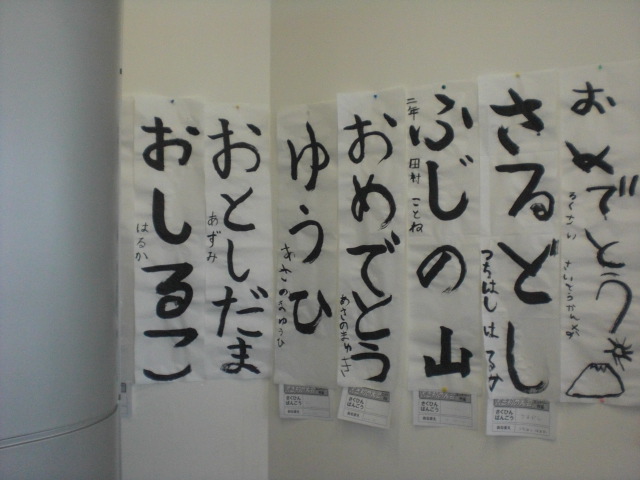 おめでとう
ろくさい さいとうかんな
さるどし
つちはし はるか
ふじの山
二年 田村 ことね
おめでとう
あさのまゆき
ゆうひ
あさのゆうひ
おとしだま
あずみ
おしるこ
はるか
さくひん
ばんごう
さくひん
ばんごう
さくひん
ばんごう
さくひん
ばんごう